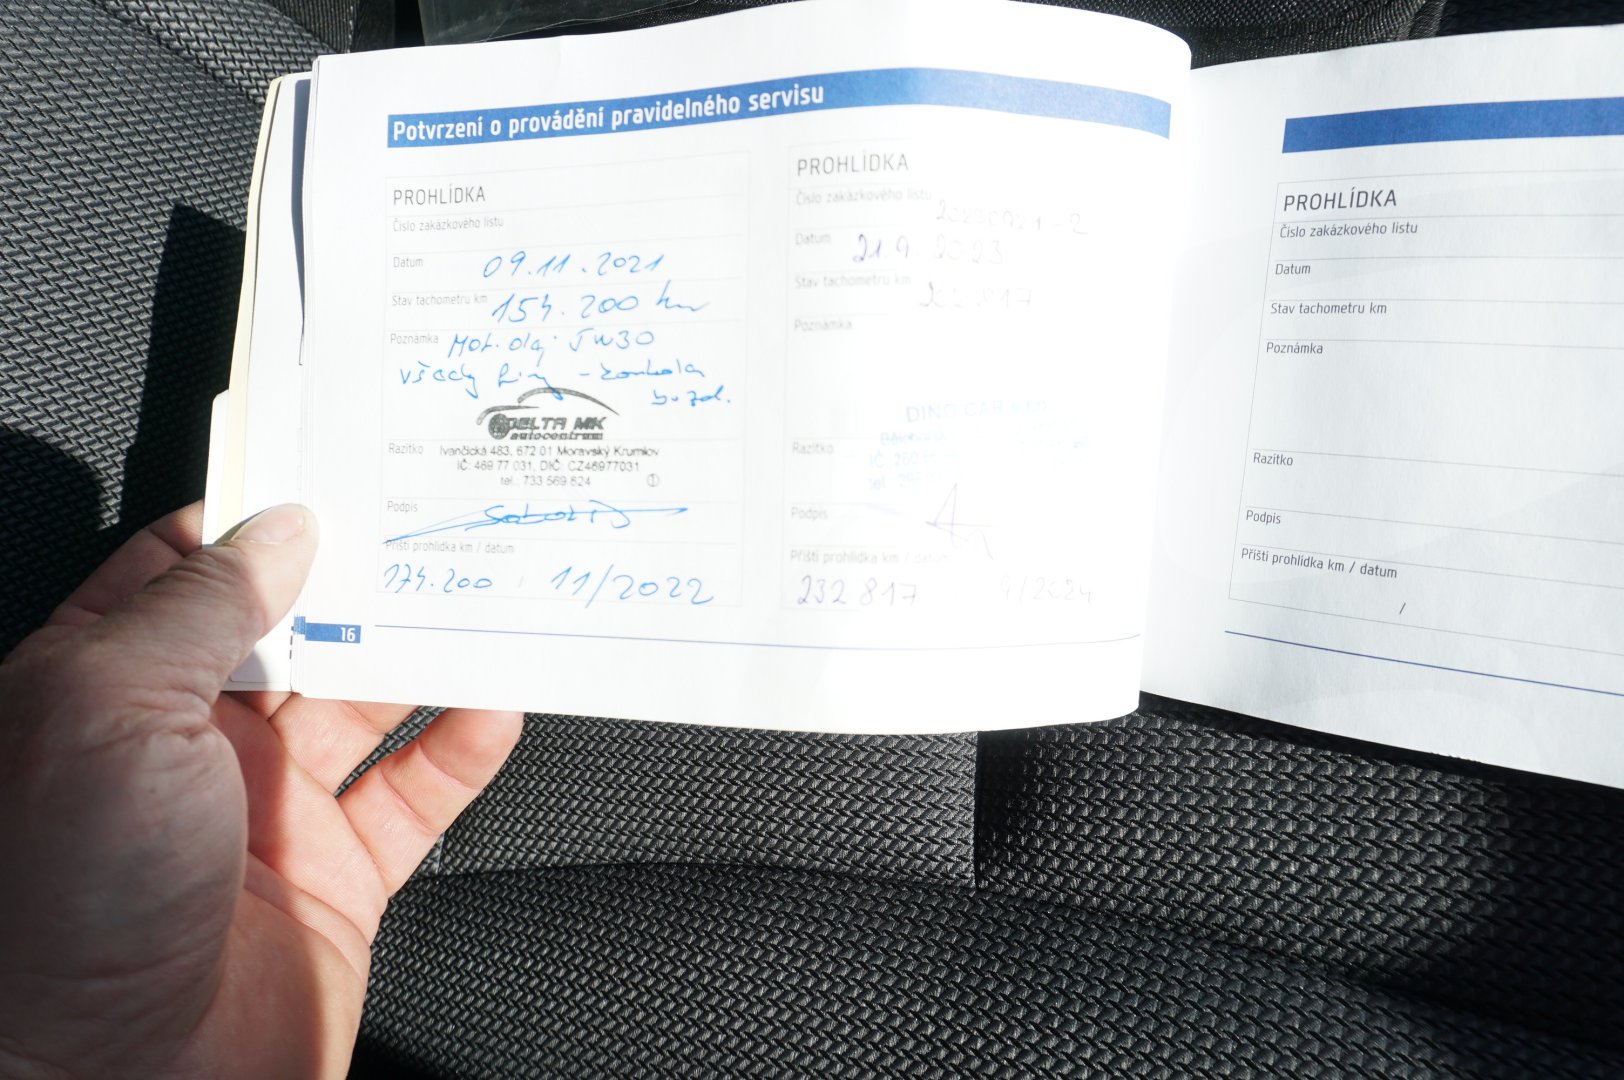 Potvrzení o provádění pravidelného servisu
PROHLÍDKA
Číslo zakázkového listu
Datum 09.11.2021
Stav tachometru km 154.200 km
Poznámka Mot. olej 5W30
všechny - kontrola
bozd.
DELTA MK
autocentrum
Razítko Ivančická 483, 672 01 Moravský Krumlov
IČ: 469 77 031, DIČ: CZ46977031
tel.: 733 569 624 ①
Podpis
Příští prohlídka km / datum
174.200 / 11/2022
16
PROHLÍDKA
Číslo zakázkového listu
Datum 21.9.2023
Stav tachometru km
Poznámka
DINO CAR s.r.o.
Razítko
Podpis
Příští prohlídka km / datum
232 817 9/2024
PROHLÍDKA
Číslo zakázkového listu
Datum
Stav tachometru km
Poznámka
Razítko
Podpis
Příští prohlídka km / datum
/